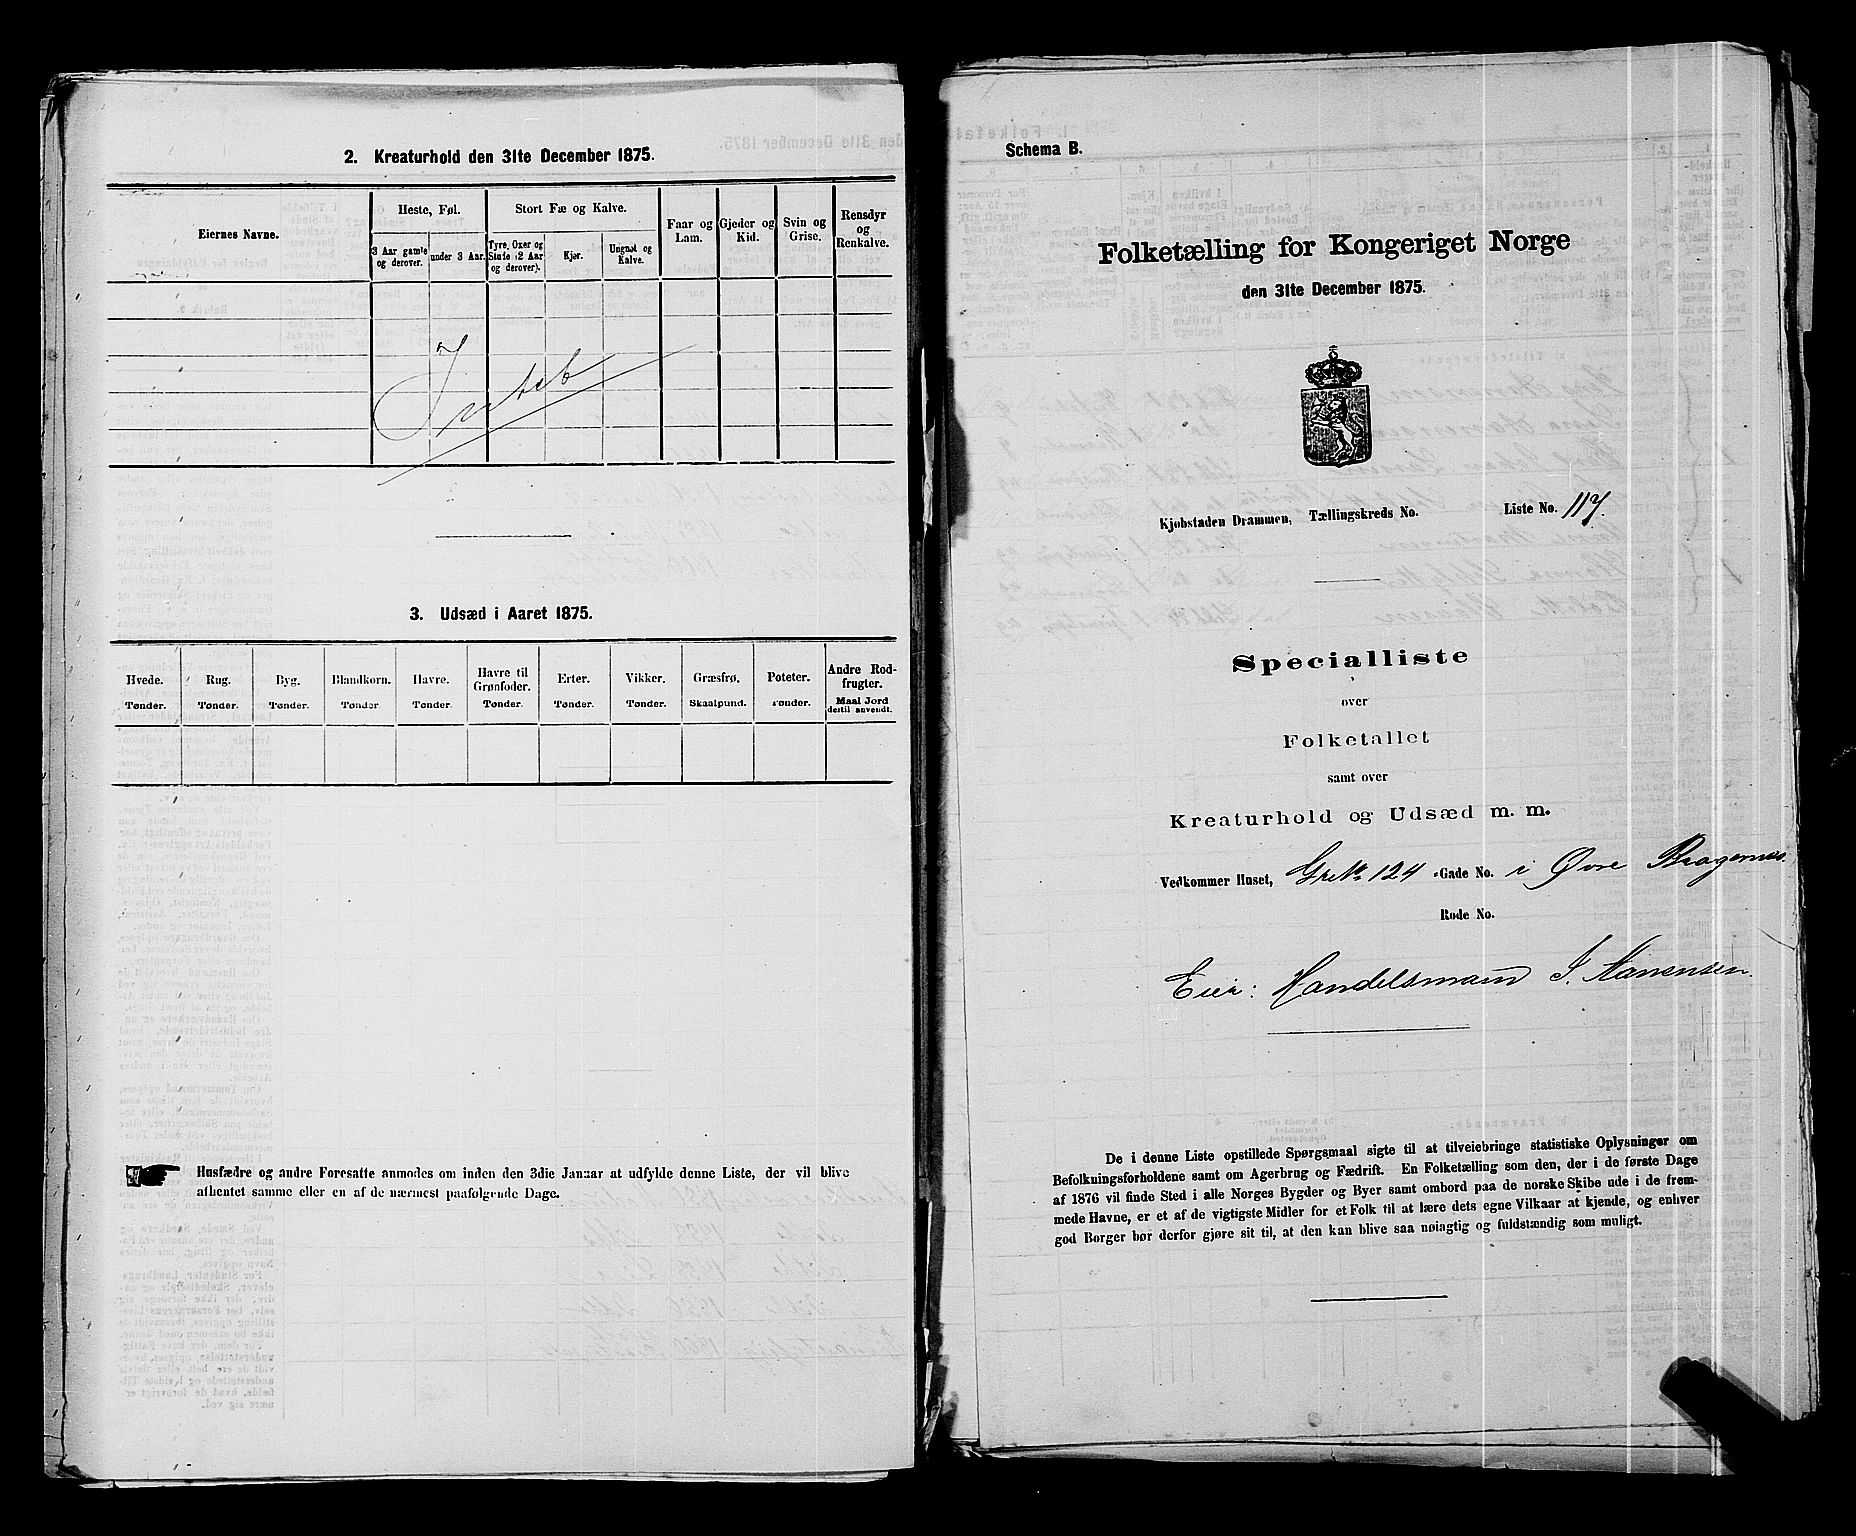 2. Kreaturhold den 31te December 1875.
Eiernes Navne.
Heste, Føl.
3 Aar gamle og derover.
under 3 Aar.
Stort Fæ og Kalve.
Tyre, Oxer og Stude (2 Aar og derover).
Kjør.
Ungnøt og Kalve.
Faar og Lam.
Gjeder og Kid.
Svin og Grise.
Rensdyr og Renkalve.
Intet
3. Udsæd i Aaret 1875.
Hvede. Tønder.
Rug. Tønder.
Byg. Tønder.
Blandkorn. Tønder.
Havre. Tønder.
Havre til Grønfoder. Tønder.
Erter. Tønder.
Vikker. Tønder.
Græsfrø. Skaalpund.
Poteter. Tønder.
Andre Rodfrugter. Maal Jord dertil anvendt.
Husfædre og andre Foresatte anmodes om inden den 3die Januar at udfylde denne Liste, der vil blive
afhentet samme eller en af de nærmest paafølgende Dage.
Schema B.
Folketælling for Kongeriget Norge
den 31te December 1875.
Kjøbstaden Drammen, Tællingskreds No. Liste No. 117.
Specialliste
over
Folketallet
samt over
Kreaturhold og Udsæd m. m.
Vedkommer Huset, Gr No 124 -Gade No. i Øvre Bragernes.
Rode No.
Eier: Handelsmand J. Aanensen.
De i denne Liste opstillede Spørgsmaal sigte til at tilveiebringe statistiske Oplysninger om
Befolkningsforholdene samt om Agerbrug og Fædrift. En Folketælling som den, der i de første Dage
af 1876 vil finde Sted i alle Norges Bygder og Byer samt ombord paa de norske Skibe ude i de frem-
mede Havne, er et af de vigtigste Midler for et Folk til at lære dets egne Vilkaar at kjende, og enhver
god Borger bør derfor gjøre sit til, at den kan blive saa nøiagtig og fuldstændig som muligt.